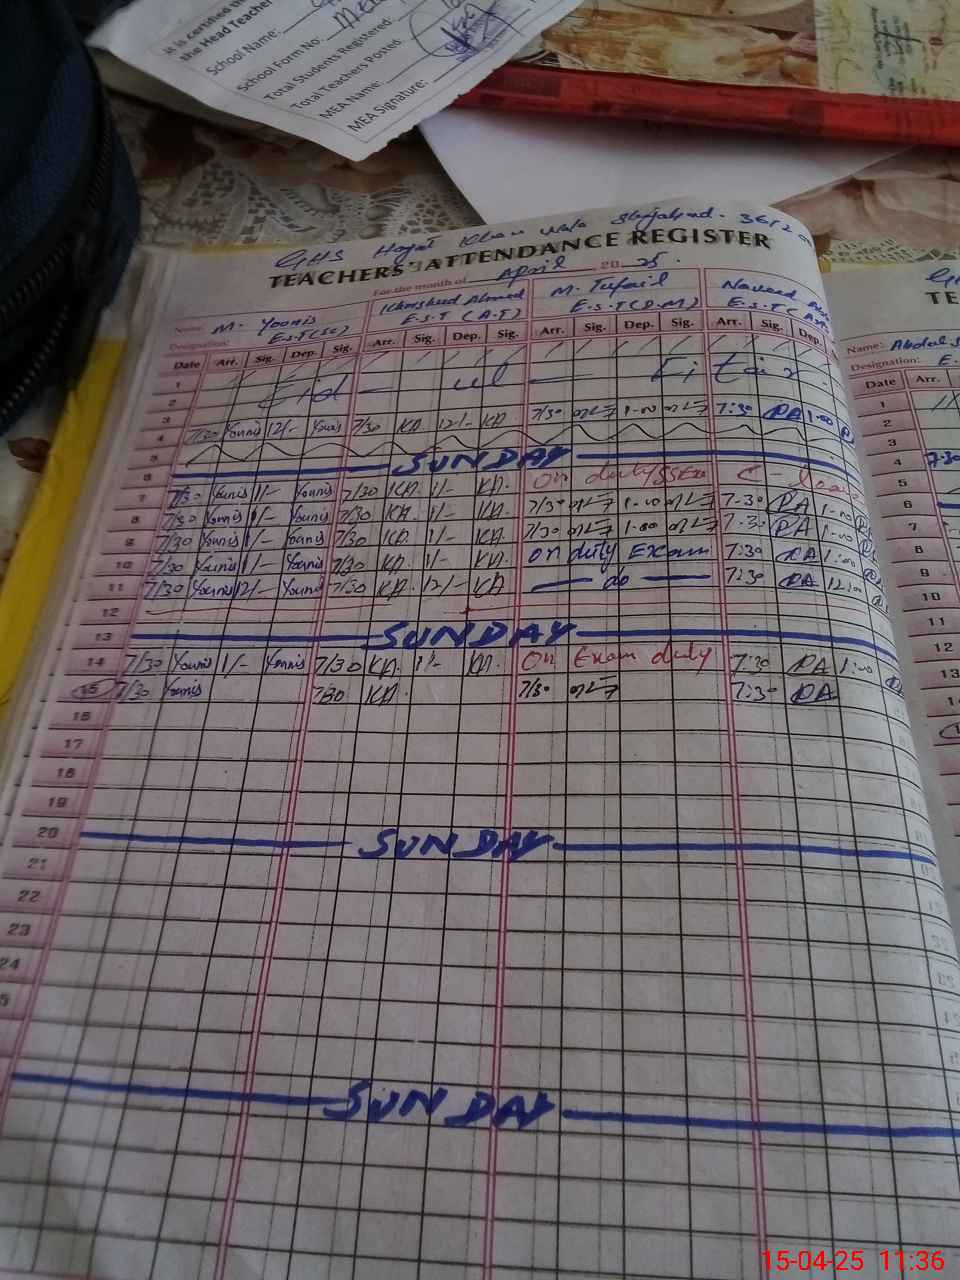 It is certified th
the Head Teacher
School Name:
School Form No:
Total Students Registered:
Total Teachers Posted
MEA Name:
MEA Signature:
GHS Hayat Khan Shujabad. 36/2
TEACHERS' ATTENDANCE REGISTER
For the month of April, 20 25.
Name: M. Younis Khorsheed Ahmed M. Tufail Naveed
Designation: E.S.T (Sc) E.S.T (A.T) E.S.T (D.M) E.S.T
Date Arr. Sig. Dep. Sig. Arr. Sig. Dep. Sig. Arr. Sig. Dep. Sig. Arr. Sig. Dep.
1
2 Eid - ul - Fitar
3
4 7/30 Younis 12/- Younis 7/30 KA 12/- KA. 7/30 1-00 7:30 RA 1:00
5
6 SUNDAY
7 7/30 Younis 1/- Younis 7/30 KA. 1/- KA. On duty C - leave
8 7/30 Younis 1/- Younis 7/30 KA. 1/- KA. 7/30 1-00 7-30 RA 1-00
9 7/30 Younis 1/- Younis 7/30 KA 1/- KA. 7/30 1-00 7-30 RA 1-00
10 7/30 Younis 1/- Younis 7/30 KA. 1/- KA on duty Exam 7:30 RA 1:00
11 7/30 Younis 12/- Younis 7/30 KA. 12/- KA do 7:30 RA 12:00
12
13 SUNDAY
14 7/30 Younis 1/- Younis 7/30 KA. 1/- KA. On Exam duty 7:30 RA 1:00
15 7/30 Younis 7/30 KA. 7/30 7:30 RA
16
17
18
19
20 SUNDAY
21
22
23
24
5
SUNDAY
TE
Name: Abdul
Designation: E.
Date Arr.
1
2
3
4 7:30
5
6
7
8
9
10
11
12
13
15-04-25 11:36